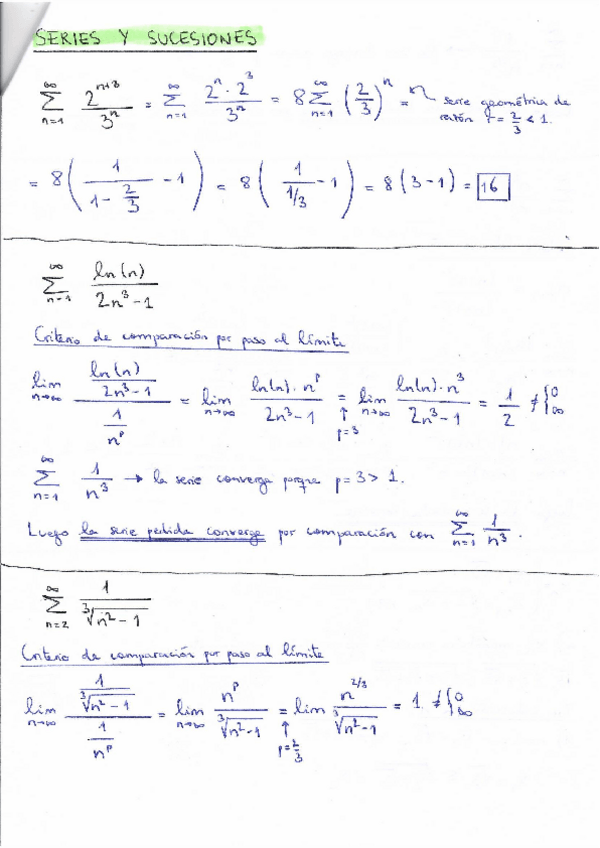 SERIES Y SUCESIONES
∞ Σ n=1 2^(n+3) / 3^n = ∞ Σ n=1 2^n · 2^3 / 3^n = 8 ∞ Σ n=1 (2/3)^n = serie geométrica de razón r = 2/3 < 1.
= 8 ( 1 / (1 - 2/3) - 1 ) = 8 ( 1 / (1/3) - 1 ) = 8 (3 - 1) = 16
∞ Σ n=1 ln(n) / (2n^3 - 1)
Criterio de comparación por paso al límite
lim n→∞ (ln(n) / (2n^3 - 1)) / (1 / n^p) = lim n→∞ ln(n) · n^p / (2n^3 - 1) = ↑ p=3 lim n→∞ ln(n) · n^3 / (2n^3 - 1) = 1/2 ≠ { 0 ∞
∞ Σ n=1 1/n^3 → la serie converge porque p = 3 > 1.
Luego la serie pedida converge por comparación con ∞ Σ n=1 1/n^3.
∞ Σ n=2 1 / ∛(n^2 - 1)
Criterio de comparación por paso al límite
lim n→∞ (1 / ∛(n^2 - 1)) / (1 / n^p) = lim n→∞ n^p / ∛(n^2 - 1) = ↑ p=2/3 lim n^(2/3) / ∛(n^2 - 1) = 1 ≠ { 0 ∞